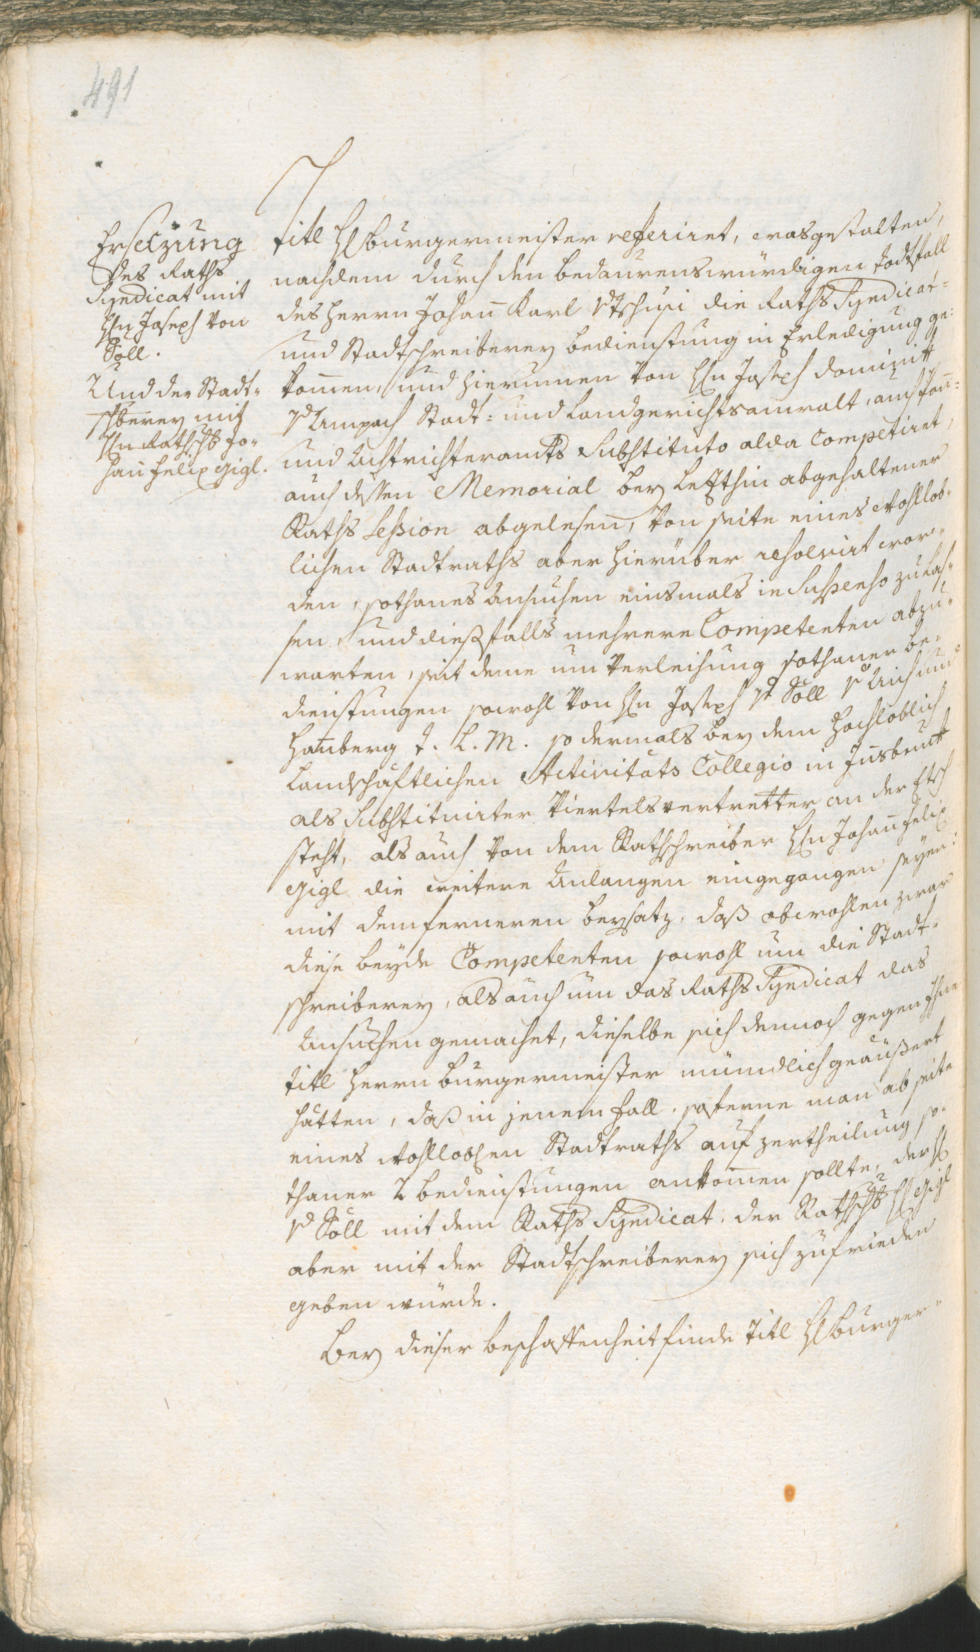 491
Ersetzung
des Raths
Syndicat mit
Hn Joseph von
Söll.
Und der Stadt-
schberey mit
Hn Rathschb Jo-
hañ Felix Gigl.
Titl H Burgermeister referiret, wasgestalten,
nachdem durch den bedaurenswürdigen Todtfall
des Herrn Johañ Karl die Raths Syndicat-
und Stadtschreiberey bedienstung in Erledigung ge-
kom̄en, und hierum̄en von Hn Joseph Dominikk
v Ampach Stadt- und Landgerichtsanwalt, auch
und Achtrichteramts Substituto alda competiret,
auch dessen Memorial bey letzthin abgehaltener
Raths Session abgelesen, von seite eines wohllob-
lichen Stadtraths aber hierüber resolvirt wor-
den, sothanes Ansuchen einsmals in Suspenso zu las-
sen, und diesfalls mehrere Competenten abzu-
warten, seit deme um Verleihung sothaner be-
dienstungen sowohl von Hn Joseph v Söll v Aich und
Hamberg T. L. M. so dermals bey dem Hochloblich
Landschaftlichen Activitäts Collegio in Jn̄sbrukk
als Substituirter Viertelsvertretter an der Etsch
steht, als auch von dem Rathschreiber Hn Johañ Felix
Gigl die weitere Anlangen eingegangen seyen:
mit dem ferneren beysatz, daß obwohlen zwar
diese beyde Competenten sowohl um die Stadt-
schreiberey, als auch um das Raths Syndicat das
Ansuchen gemachet, dieselbe sich dennoch gegen Ihne
Titl Herrn Burgermeister mündlich geäußert
hätten, daß in jenem Fall, soferne man ab seite
eines wohlloblen Stadtraths auf zertheilung so-
thaner 2 bedienstungen ankom̄en sollte, der H
v Söll mit dem Raths Syndicat, der Rathschb H Gigl
aber mit der Stadtschreiberey sich zufrieden
geben würde.
Bey dieser beschaffenheit finde Titl H Burger-